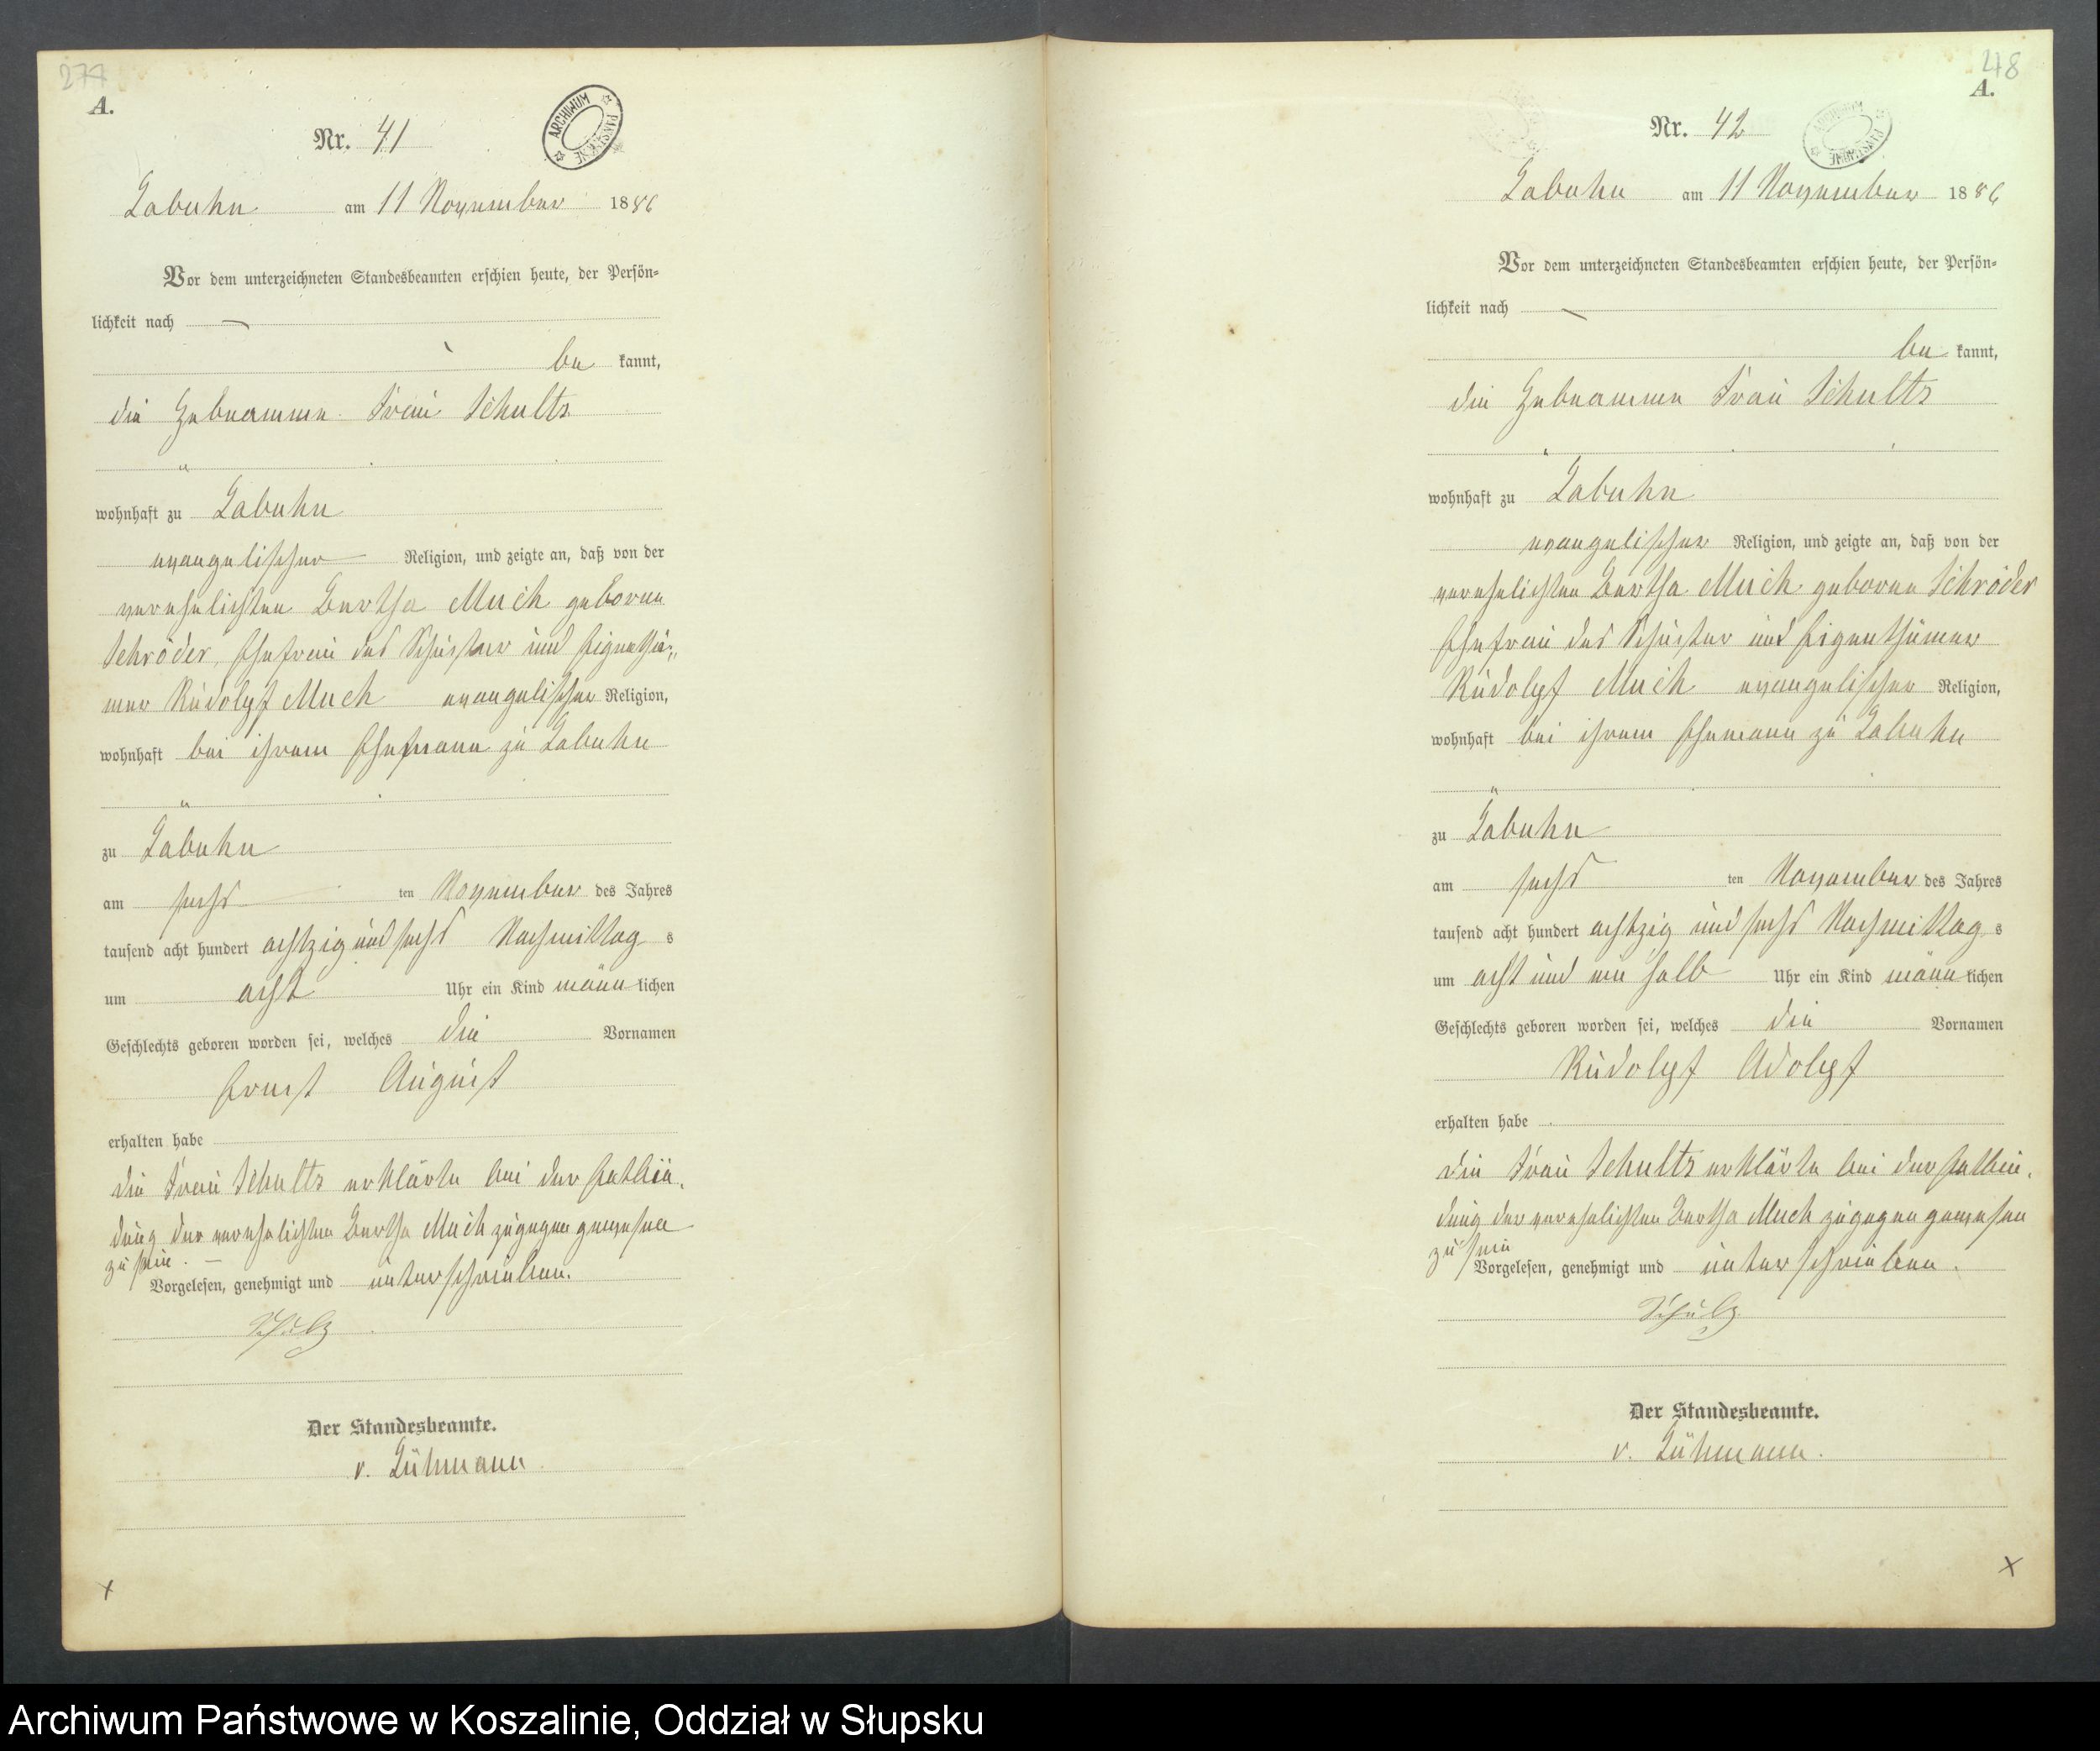 274
A.
Nr. 41
ARCHIWUM PAŃSTWOWE
Labuhn am 11 November 1886
Vor dem unterzeichneten Standesbeamten erschien heute, der Persön=
lichkeit nach
be kannt,
die Hebeamme Frau Schultz
wohnhaft zu Labuhn
evangelischer Religion, und zeigte an, daß von der
verehelichten Bertha Much geborne
Schröder, Ehefrau des Schuster und Eigenthü=
mer Rudolpf Much evangelischer Religion,
wohnhaft bei ihrem Ehemann zu Labuhn
zu Labuhn
am sechs ten November des Jahres
tausend acht hundert achtzig und sechs Nachmittag s
um acht Uhr ein Kind männ lichen
Geschlechts geboren worden sei, welches die Vornamen
Ernst August
erhalten habe
die Frau Schultz erklärte bei der Entbin-
dung der verehelichten Bertha Much zugegen gewesen
zu sein.
Vorgelesen, genehmigt und unterschrieben.
Schulz
Der Standesbeamte.
v. Lühmann.
48
A.
Nr. 42
ARCHIWUM PAŃSTWOWE
Labuhn am 11 November 1886
Vor dem unterzeichneten Standesbeamten erschien heute, der Persön=
lichkeit nach
be kannt,
die Hebeamme Frau Schultz
wohnhaft zu Labuhn
evangelischer Religion, und zeigte an, daß von der
verehelichten Bertha Much geborne Schröder
Ehefrau des Schuster und Eigenthümer
Rudolpf Much evangelischer Religion,
wohnhaft bei ihrem Ehemann zu Labuhn
zu Labuhn
am sechs ten November des Jahres
tausend acht hundert achtzig und sechs Nachmittag s
um acht und ein halb Uhr ein Kind männ lichen
Geschlechts geboren worden sei, welches die Vornamen
Rudolpf Adolpf
erhalten habe
die Frau Schultz erklärte bei der Entbin-
dung der verehelichten Bertha Much zugegen gewesen
zu sein
Vorgelesen, genehmigt und unterschrieben.
Schulz
Der Standesbeamte.
v. Lühmann.
Archiwum Państwowe w Koszalinie, Oddział w Słupsku